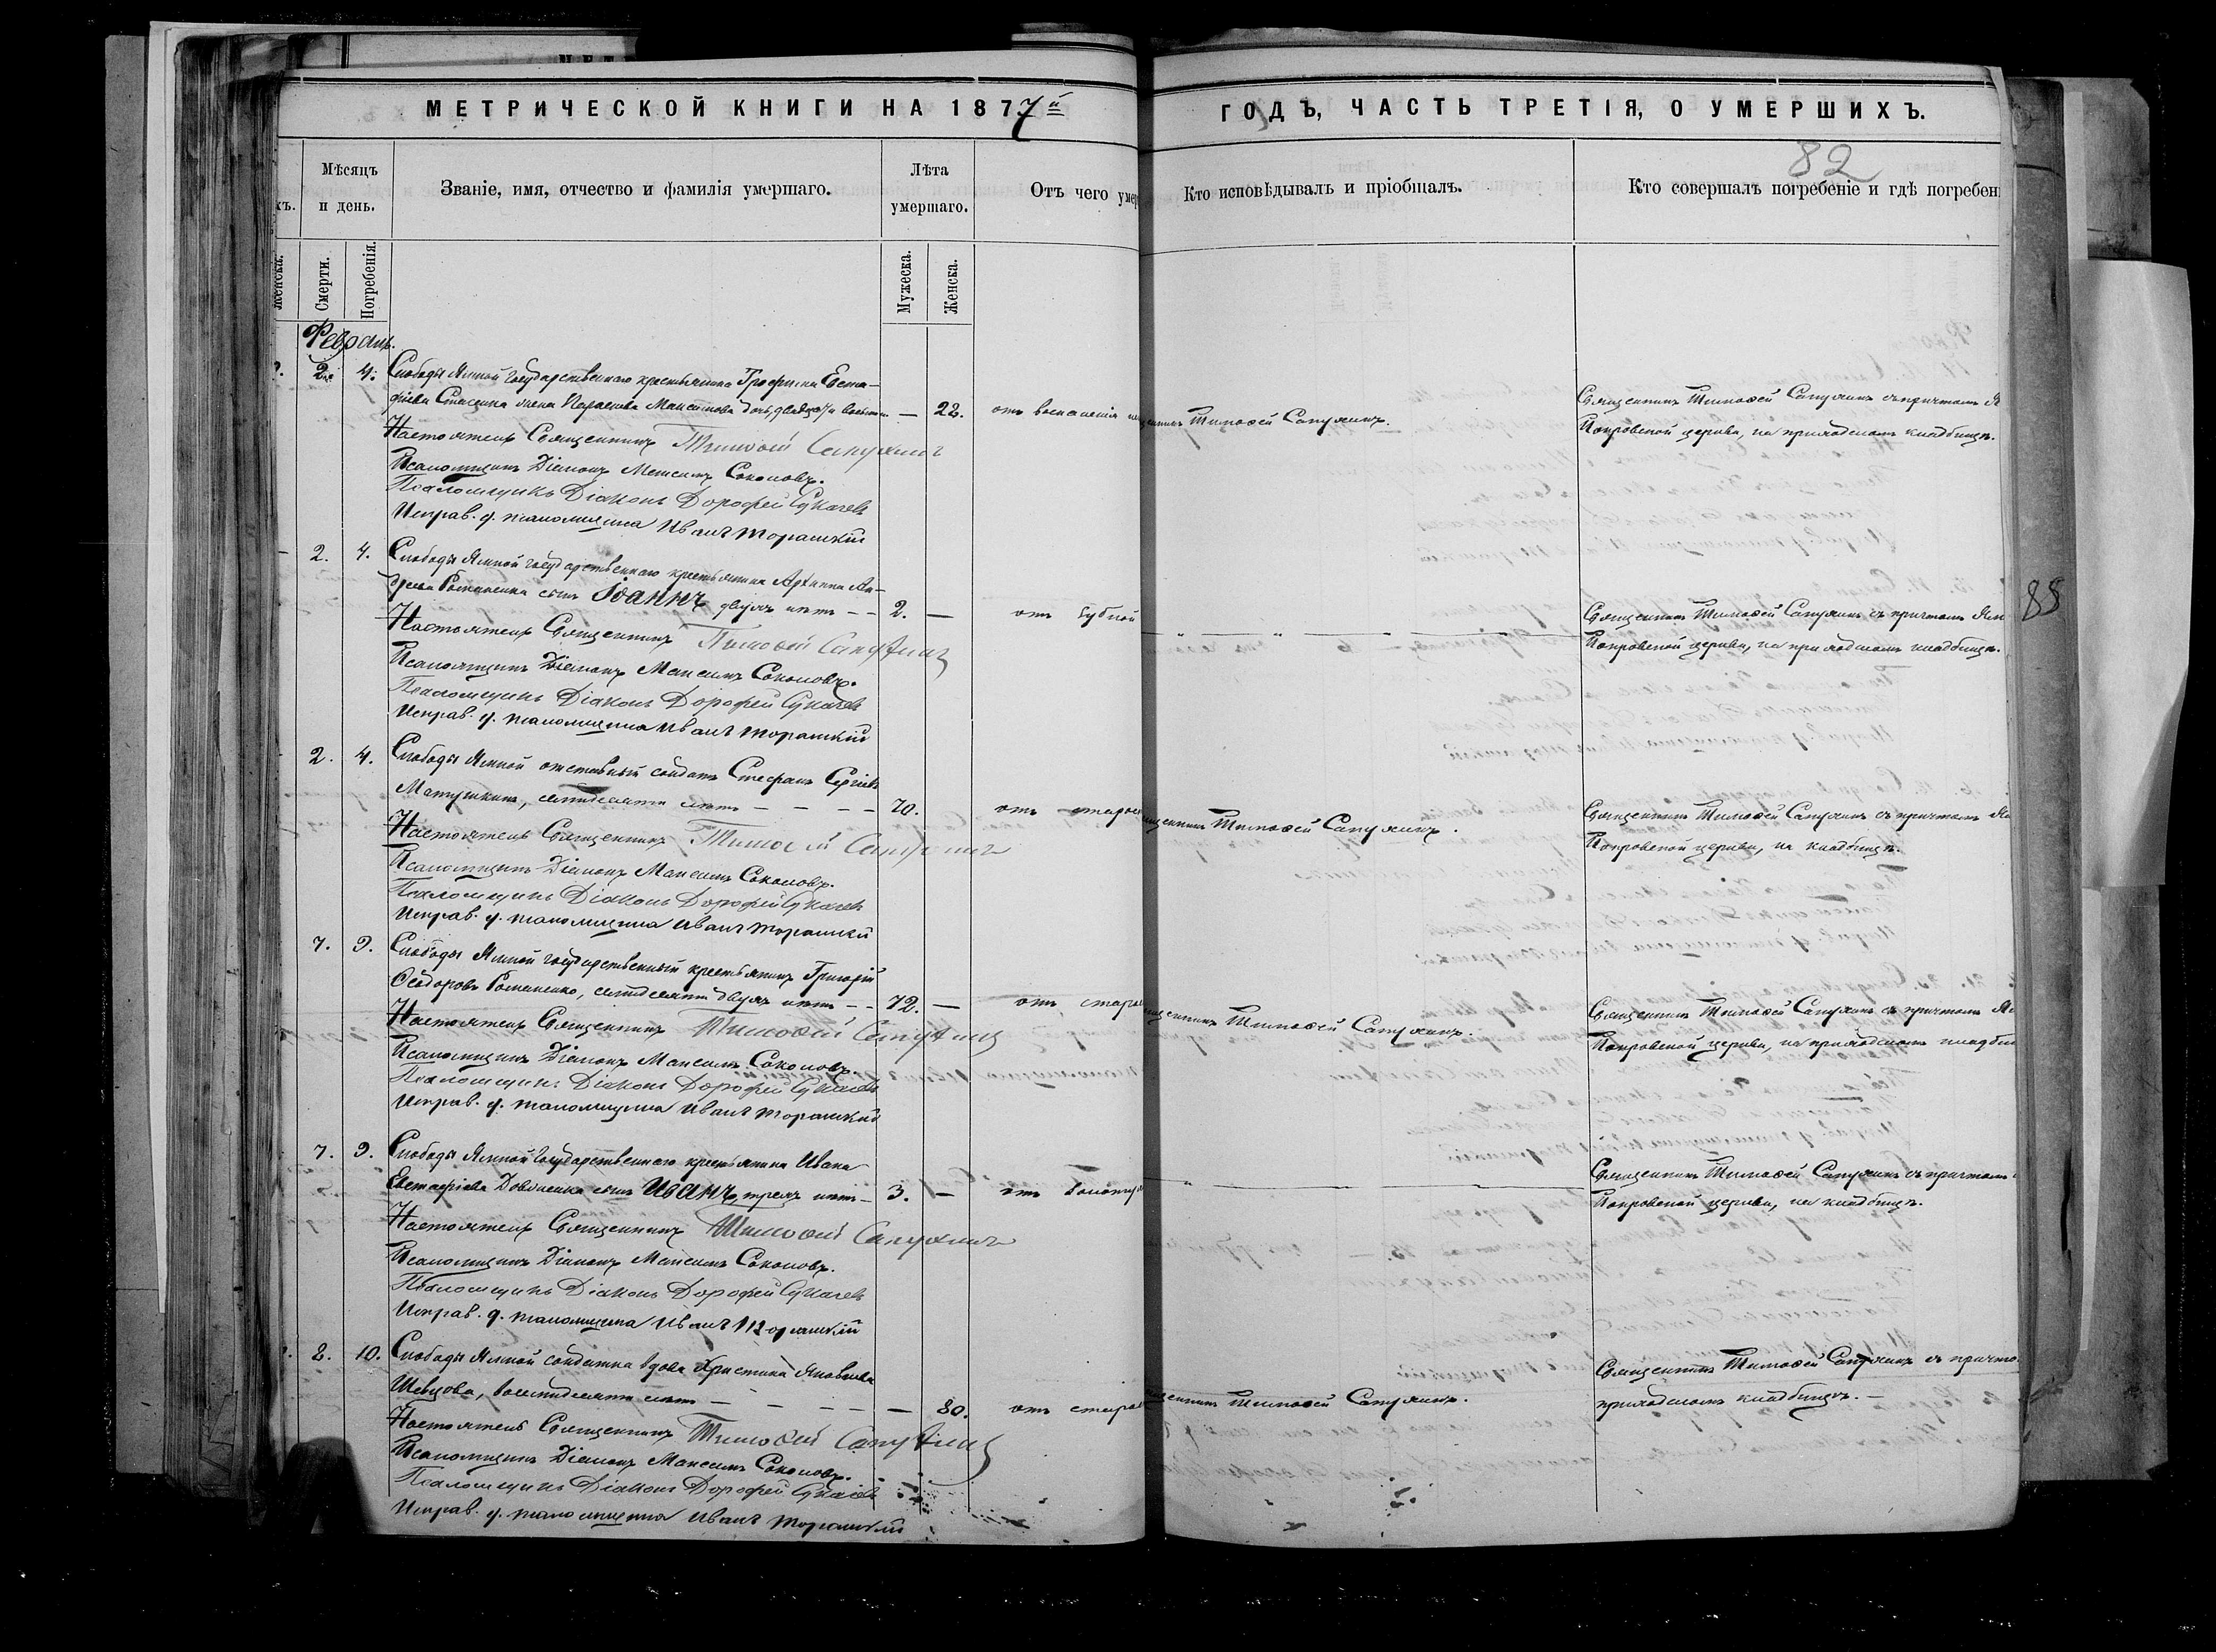 МЕТРИЧЕСКОЙ КНИГИ НА 1877й
ГОДЪ, ЧАСТЬ ТРЕТІЯ, О УМЕРШИХЪ.
82
Мѣсяцъ и день.
Званіе, имя, отчество и фамилія умершаго.
Лѣта умершаго.
Отъ чего умер
Кто исповѣдывалъ и пріобщалъ.
Кто совершалъ погребеніе и гдѣ погребен
Женска.
Смерти.
Погребенія.
Мужеска.
Женска.
Февраль.
2. 4. Слободы Ямной государственнаго крестьянина Трофима Евста-
фіева жена Максимова — 28. отъ воспаленія
Священникъ Тимоѳей Сапухинъ.
Священникъ Тимоѳей Сапухинъ съ причтомъ
Покровской церкви, на приходскомъ кладбищѣ.
Настоятель Священникъ Тимоѳей Сапухинъ
Псаломщикъ Діаконъ Максимъ Соколовъ.
Псаломщикъ Діаконъ Дорофей Сукачевъ
Исправ. д. псаломщика Иванъ
2. 4. Слободы Ямной государственнаго крестьянина Архиппа Ан-
дреева Романенка сынъ Іоаннъ двухъ лѣтъ – – 2. — отъ зубной
Священникъ Тимоѳей Сапухинъ съ причтомъ Ям
Покровской церкви, на приходскомъ кладбищѣ.
Настоятель Священникъ Тимоѳей Сапухинъ
Псаломщикъ Діаконъ Максимъ Соколовъ.
Псаломщикъ Діаконъ Дорофей Сукачевъ
Исправ. д. псаломщика Иванъ
88
2. 4. Слободы Ямной отставный солдатъ Стефанъ Сергіевъ
Матушкинъ, семидесяти лѣтъ – – – – 70. отъ старос
Священникъ Тимоѳей Сапухинъ.
Священникъ Тимоѳей Сапухинъ съ причтомъ Ям
Покровской церкви, на кладбищѣ.
Настоятель Священникъ Тимоѳей Сапухинъ
Псаломщикъ Діаконъ Максимъ Соколовъ.
Псаломщикъ Діаконъ Дорофей Сукачевъ
Исправ. д. псаломщика Иванъ
7. 9. Слободы Ямной государственный крестьянинъ Григорій
Ѳеодоровъ Романенко, семидесяти двухъ лѣтъ – – 72. — отъ старос
Священникъ Тимоѳей Сапухинъ.
Священникъ Тимоѳей Сапухинъ съ причтомъ Ям
Покровской церкви, на приходскомъ кладбищ
Настоятель Священникъ Тимоѳей Сапухинъ
Псаломщикъ Діаконъ Максимъ Соколовъ.
Псаломщикъ Діаконъ Дорофей Сукачевъ
Исправ. д. псаломщика Иванъ
7. 9. Слободы Ямной государственнаго крестьянина Ивана
Евстафіева сынъ Иванъ, трехъ лѣтъ – 3. — отъ
Священникъ Тимоѳей Сапухинъ съ причтомъ
Покровской церкви, на кладбищѣ.
Настоятель Священникъ Тимоѳей Сапухинъ
Псаломщикъ Діаконъ Максимъ Соколовъ.
Псаломщикъ Діаконъ Дорофей Сукачевъ
Исправ. д. псаломщика Иванъ
8. 10. Слободы Ямной солдатка вдова Христина Яковлева
Шевцова, восьмидесяти лѣтъ – – – – — 80. отъ старос
Священникъ Тимоѳей Сапухинъ.
Священникъ Тимоѳей Сапухинъ съ причто
приходскомъ кладбищѣ. –
Настоятель Священникъ Тимоѳей Сапухинъ
Псаломщикъ Діаконъ Максимъ Соколовъ.
Псаломщикъ Діаконъ Дорофей Сукачевъ
Исправ. д. псаломщика Иванъ